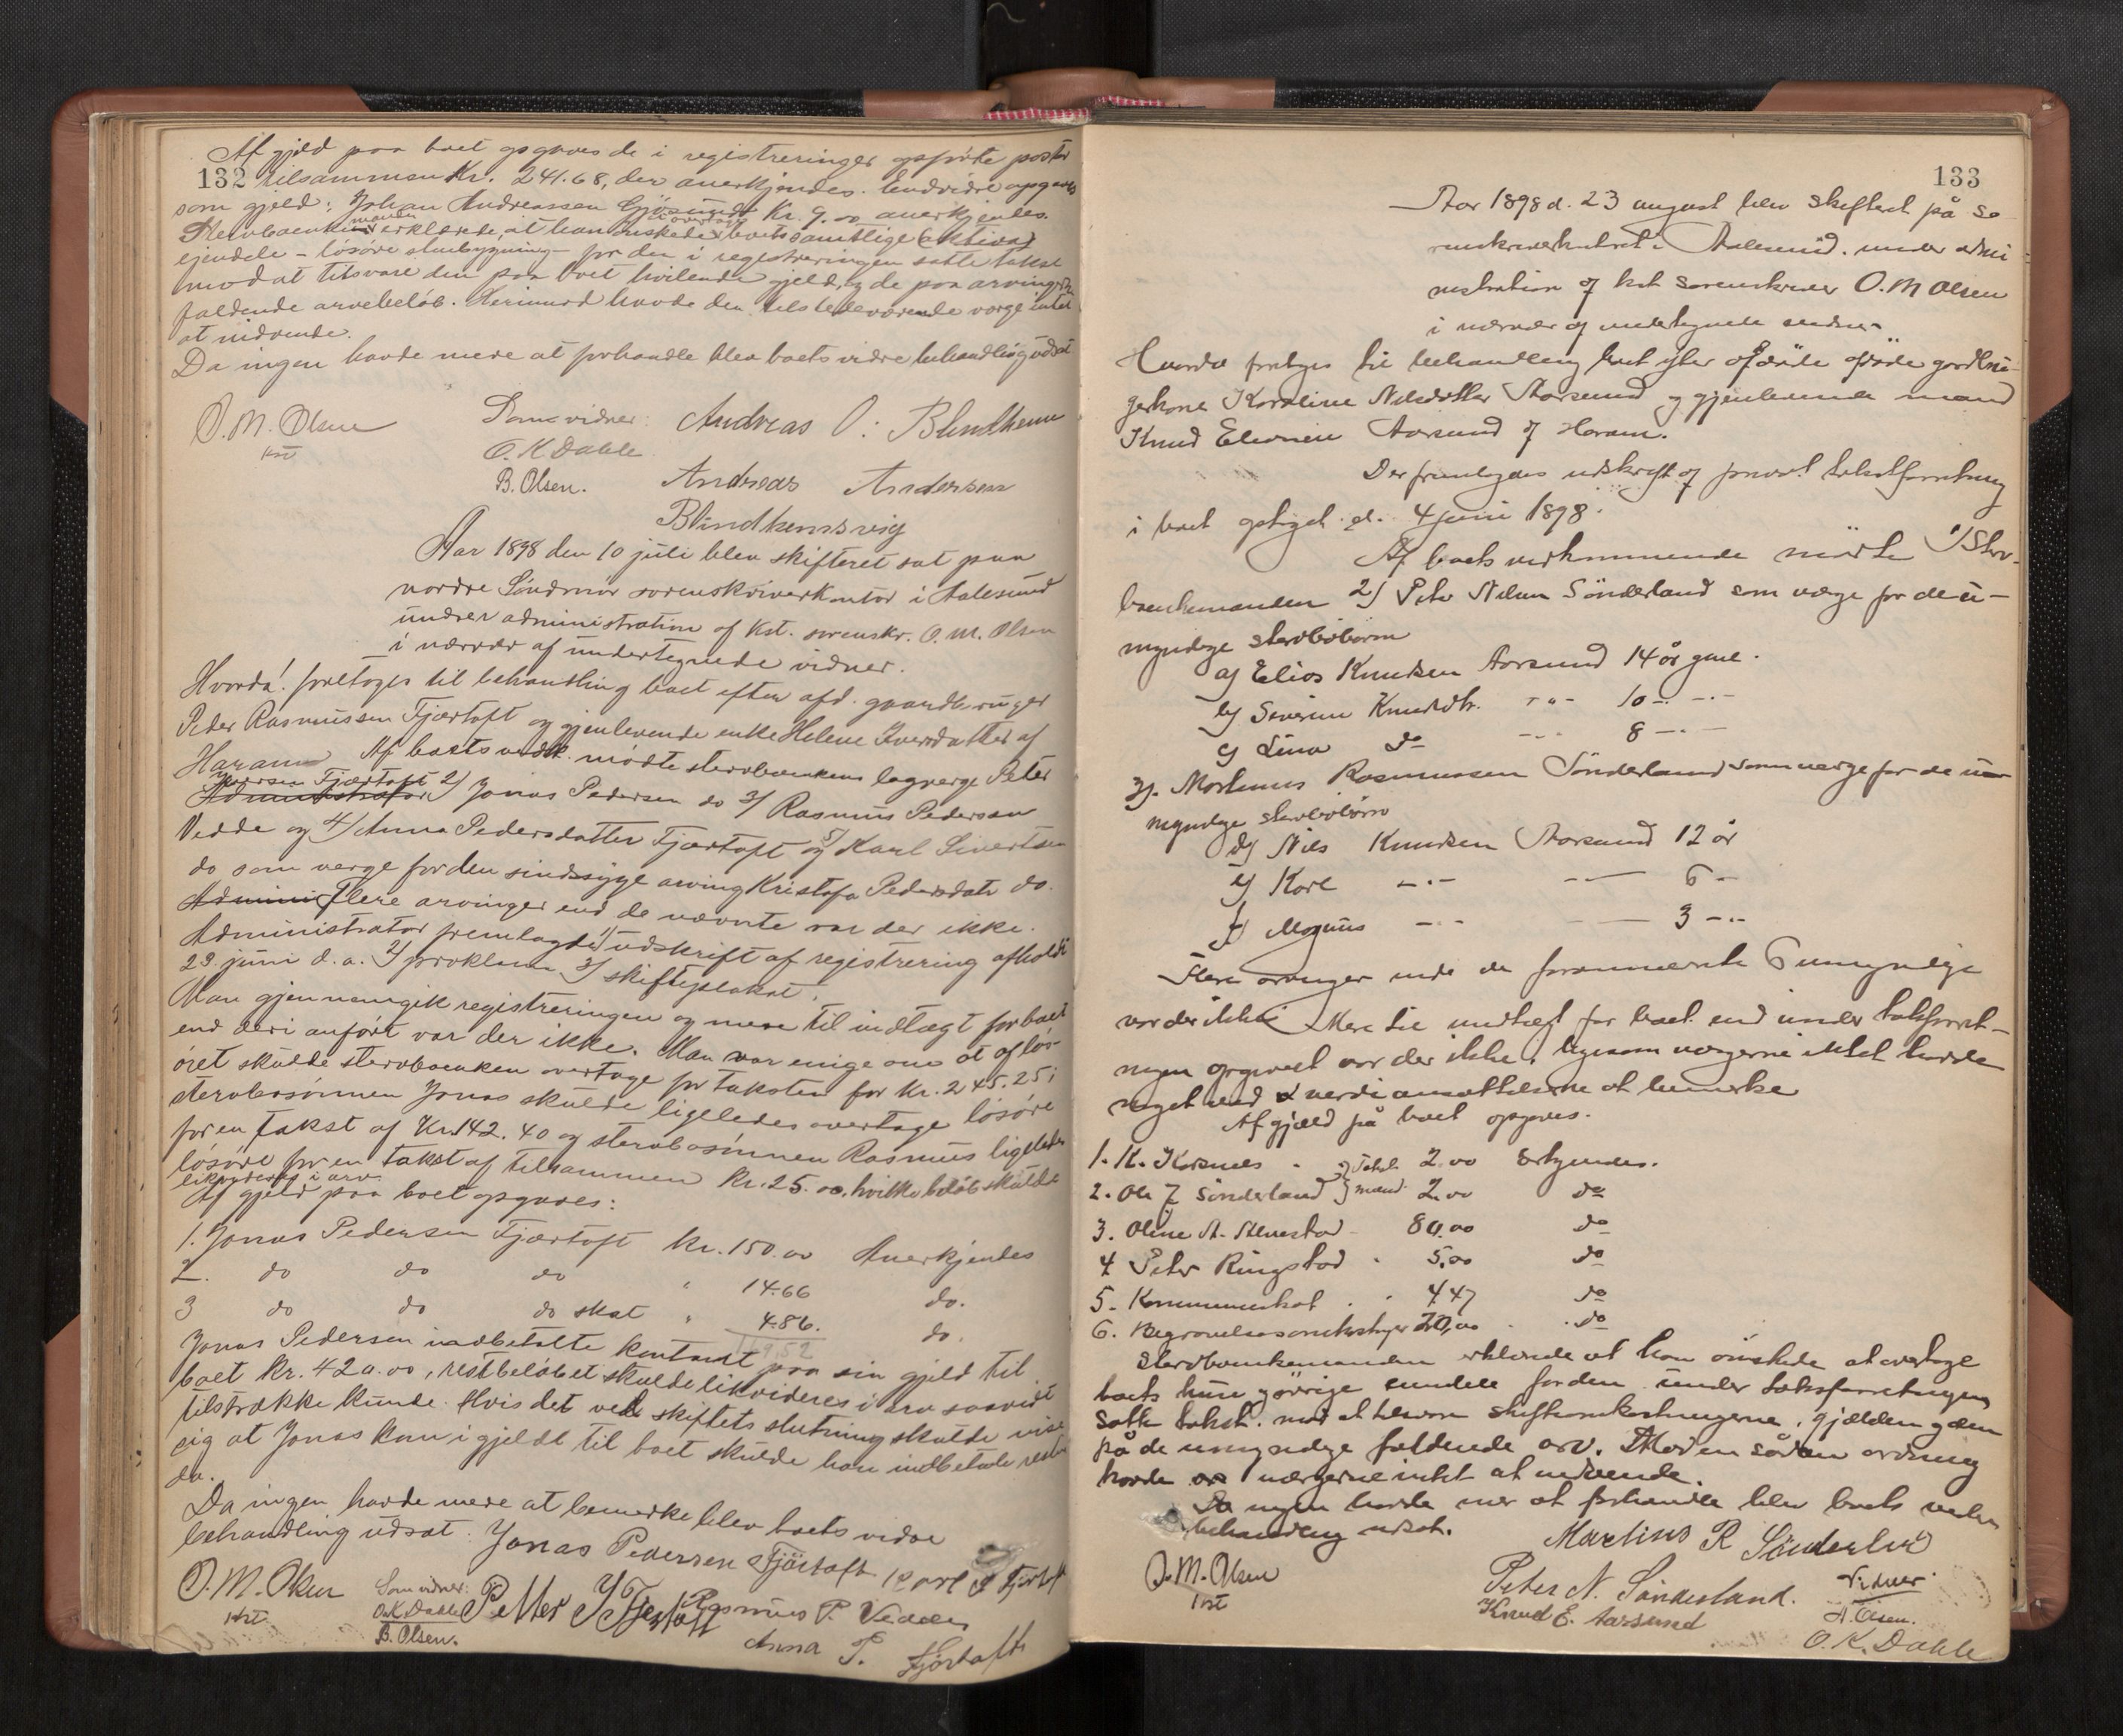 132
Af gjeld paa boet opgaves de i registreringen opførte poster
tilsammen Kr. 241.68, der anerkjendes. Endvidre opgaves
som gjeld: Johan Andreassen Gjøsund Kr. 9.00 anerkjendes.
Stervboenkemanden erklærede, at han ønskede at overtage boets samtlige (aktiva)
ejendele - løsøre stuebygning - for den i registreringen satte takst
mod at tilsvare den paa boet hvilende gjeld, og de paa arvingerne
faldende arvebeløb. Herimod havde den tilstedeværende verge intet
at indvende.
Da ingen havde mere at forhandle blev boets vidre behandling udsat
O. M. Olsen
kst
Som vidner:
O. K. Dahle
B. Olsen.
Andreas O: Blindheim
Andreas Andersen
Blindhemsvig
Aar 1898 den 10 juli blev skifteret sat paa
nordre Søndmør sorenskriverkontor i Aalesund
under administration af Kst. sorenskr. O. M. Olsen
i nærvær af undertegnede vidner.
Hvorda! foretoges til behandling boet efter afd. gaardbruger
Peder Rasmussen Fjærtoft og gjenlevende enke Helene Iversdatter af
Haram. Af boets vedk. mødte stervboenkens lagverge Peter
Iversen Fjærtoft 2) Jonas Pedersen do 3/ Rasmus Pedersen
Vedde og 4) Anna Pedersdatter Fjærtoft og 5) Karl Sivertsen
do som verge for den sindssyge arving Kristofa Pedersdatr do.
Flere arvinger end de nævnte var der ikke.
Administrator fremlagde 1) udskrift af registrering afholdt
29. juni d. a. 2) proklama 3) skifteplakat.
Man gjennemgik registreringen og mere til indtægt for boet
end deri anført var der ikke. Man var enige om at af løs-
øret skulde stervboenken overtage for taksten for Kr. 245.25;
stervbosønnen Jonas skulde ligeledes overtage løsøre
for en takst af Kr. 142.40 og stervbosønnen Rasmus ligeledes
løsøre for en takst af tilsammen Kr. 25.00, hvilke beløb skulde
likvideres i arv.
Af gjeld paa boet opgaves:
1. Jonas Pedersen Fjærtoft Kr. 150.00 Anerkjendes
2. do do do " 14.66 do.
3 do do do skat " 4.86. do.
169,52
Jonas Pedersen indbetalte kontant paa sin gjeld til
boet Kr. 420.00, restbeløbet skulde likvideres i arv saavidt
tilstrække kunde. Hvis det ved skiftets slutning skulde vise
sig at Jonas kom i gjeld til boet skulde han indbetale resten
da.
Da ingen havde mere at bemerke blev boets vidre
behandling udsat.
Jonas Pedersen Fjørtoft Karl S Fjørtoft
O. M. Olsen
kst
Som vidner:
O. K. Dahle
B. Olsen.
Petter I Fjertoft
Rasmus P. Vedde
Anna P. Fjørtoft
133
Aar 1898 d. 23 august blev skifteret på so-
renskriverkontoret i Aalesund under admi-
nistration af kst sorenskriver O. M Olsen
i nærvær af undertegnede vidner
Hvorda foretoges til behandling boet efter afdøde gardbru-
gerkone Karoline Nilsdatter Aarsund og gjenlevende mand
Knud Aarsund af Haram.
Der fremlagdes udskrift af forret. takstforretning
i boet optaget d. 4 juni 1898.
Af boets vedkommende mødte 1/ Sterv-
boenkemanden 2) Peter Nilsen Sønderland som verge for de u-
myndige stervbobørn
a) Elias Knudsen Aarsund 14 år gml.
b) Severine Knudsdtr. - " - 10 - -
c) Lina do - - 8 - -
3). Martinus Rasmussen Sønderland som verge for de u-
myndige stervbobørn
d) Nils Knudsen Aarsund 12 år
e) Karl - - 6 -
f) Magnus - - 3 - -
Flere arvinger end de forannævnte 6 umyndige
var der ikke. Mere til indtægt for boet end under takstforret-
ningen opgivet var der ikke, ligesom vergerne intet havde
noget ved verdiansættelserne at bemerke
Af gjæld på boet opgaves.
1. K. Korsnes } Takst 2.00 Erkjendes.
2. Ole J Sønderland } mænd 2.00 do
3. Oline A. Alvestad 80,00 do
4 Peter Ringstad 5,00 do
5. Kommuneskat 4.47 do
6. Begravelsesomkostninger 20,00 do
Stervboenkemanden erklærede at han ønskede at overtage
boets huse og øvrige eiendele for den under takstforretningen
satte takst mod at tilsvare skifteomkostningerne, gjælden og den
på de umyndige faldende arv. Mod en sådan ordning
havde vergerne intet at indvende.
Da ingen havde mer at forhandle blev boets videre
behandling udsat.
O. M. Olsen
kst
Martinus R Sønderland
Peter N. Sønderland.
Knud E. Aarsund
Vidner.
A. Olsen.
O. K. Dahle